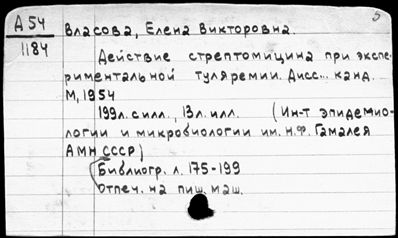 А 54
1184
5
Власова, Елена Викторовна.
Действие стрептомицина при экспе-
риментальной туляремии. Дисс... канд.
М, 1954
199л. с илл., 13л. илл. (Ин-т эпидемио-
логии и микробиологии им. Н.Ф. Гамалея
АМН СССР)
Библиогр. л. 175-199
Отпеч. на пиш. маш.